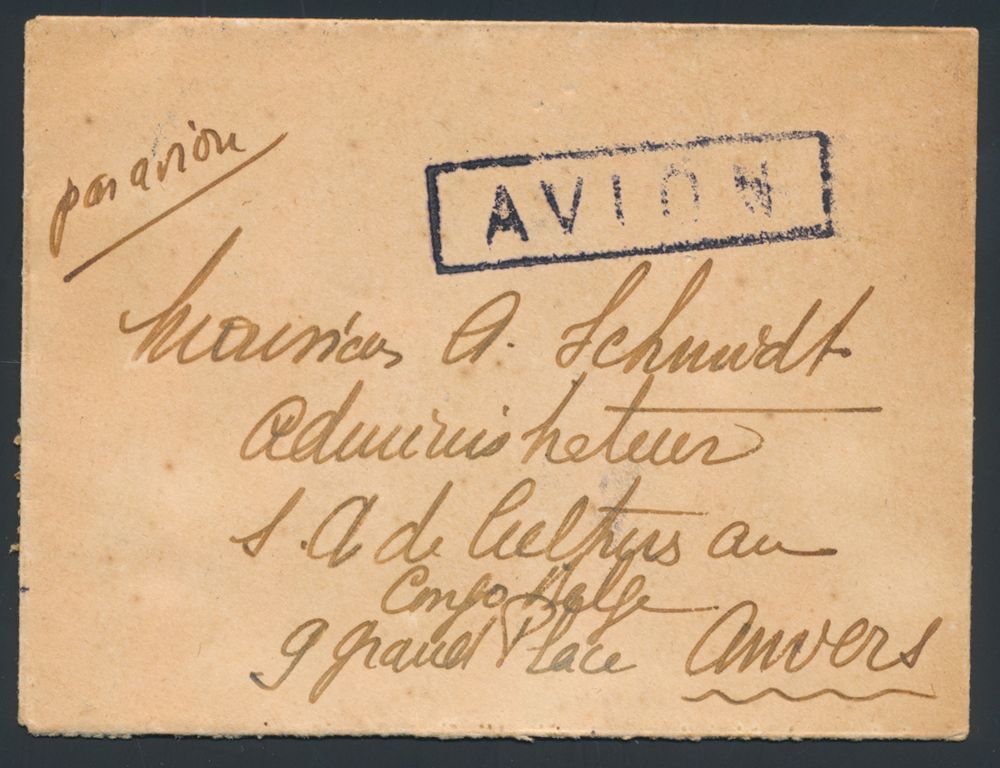 par avion
AVION
Monsieur A. Schmidt
Administrateur
S. A de Cultures au
Congo Belge
9 Grand Place Anvers